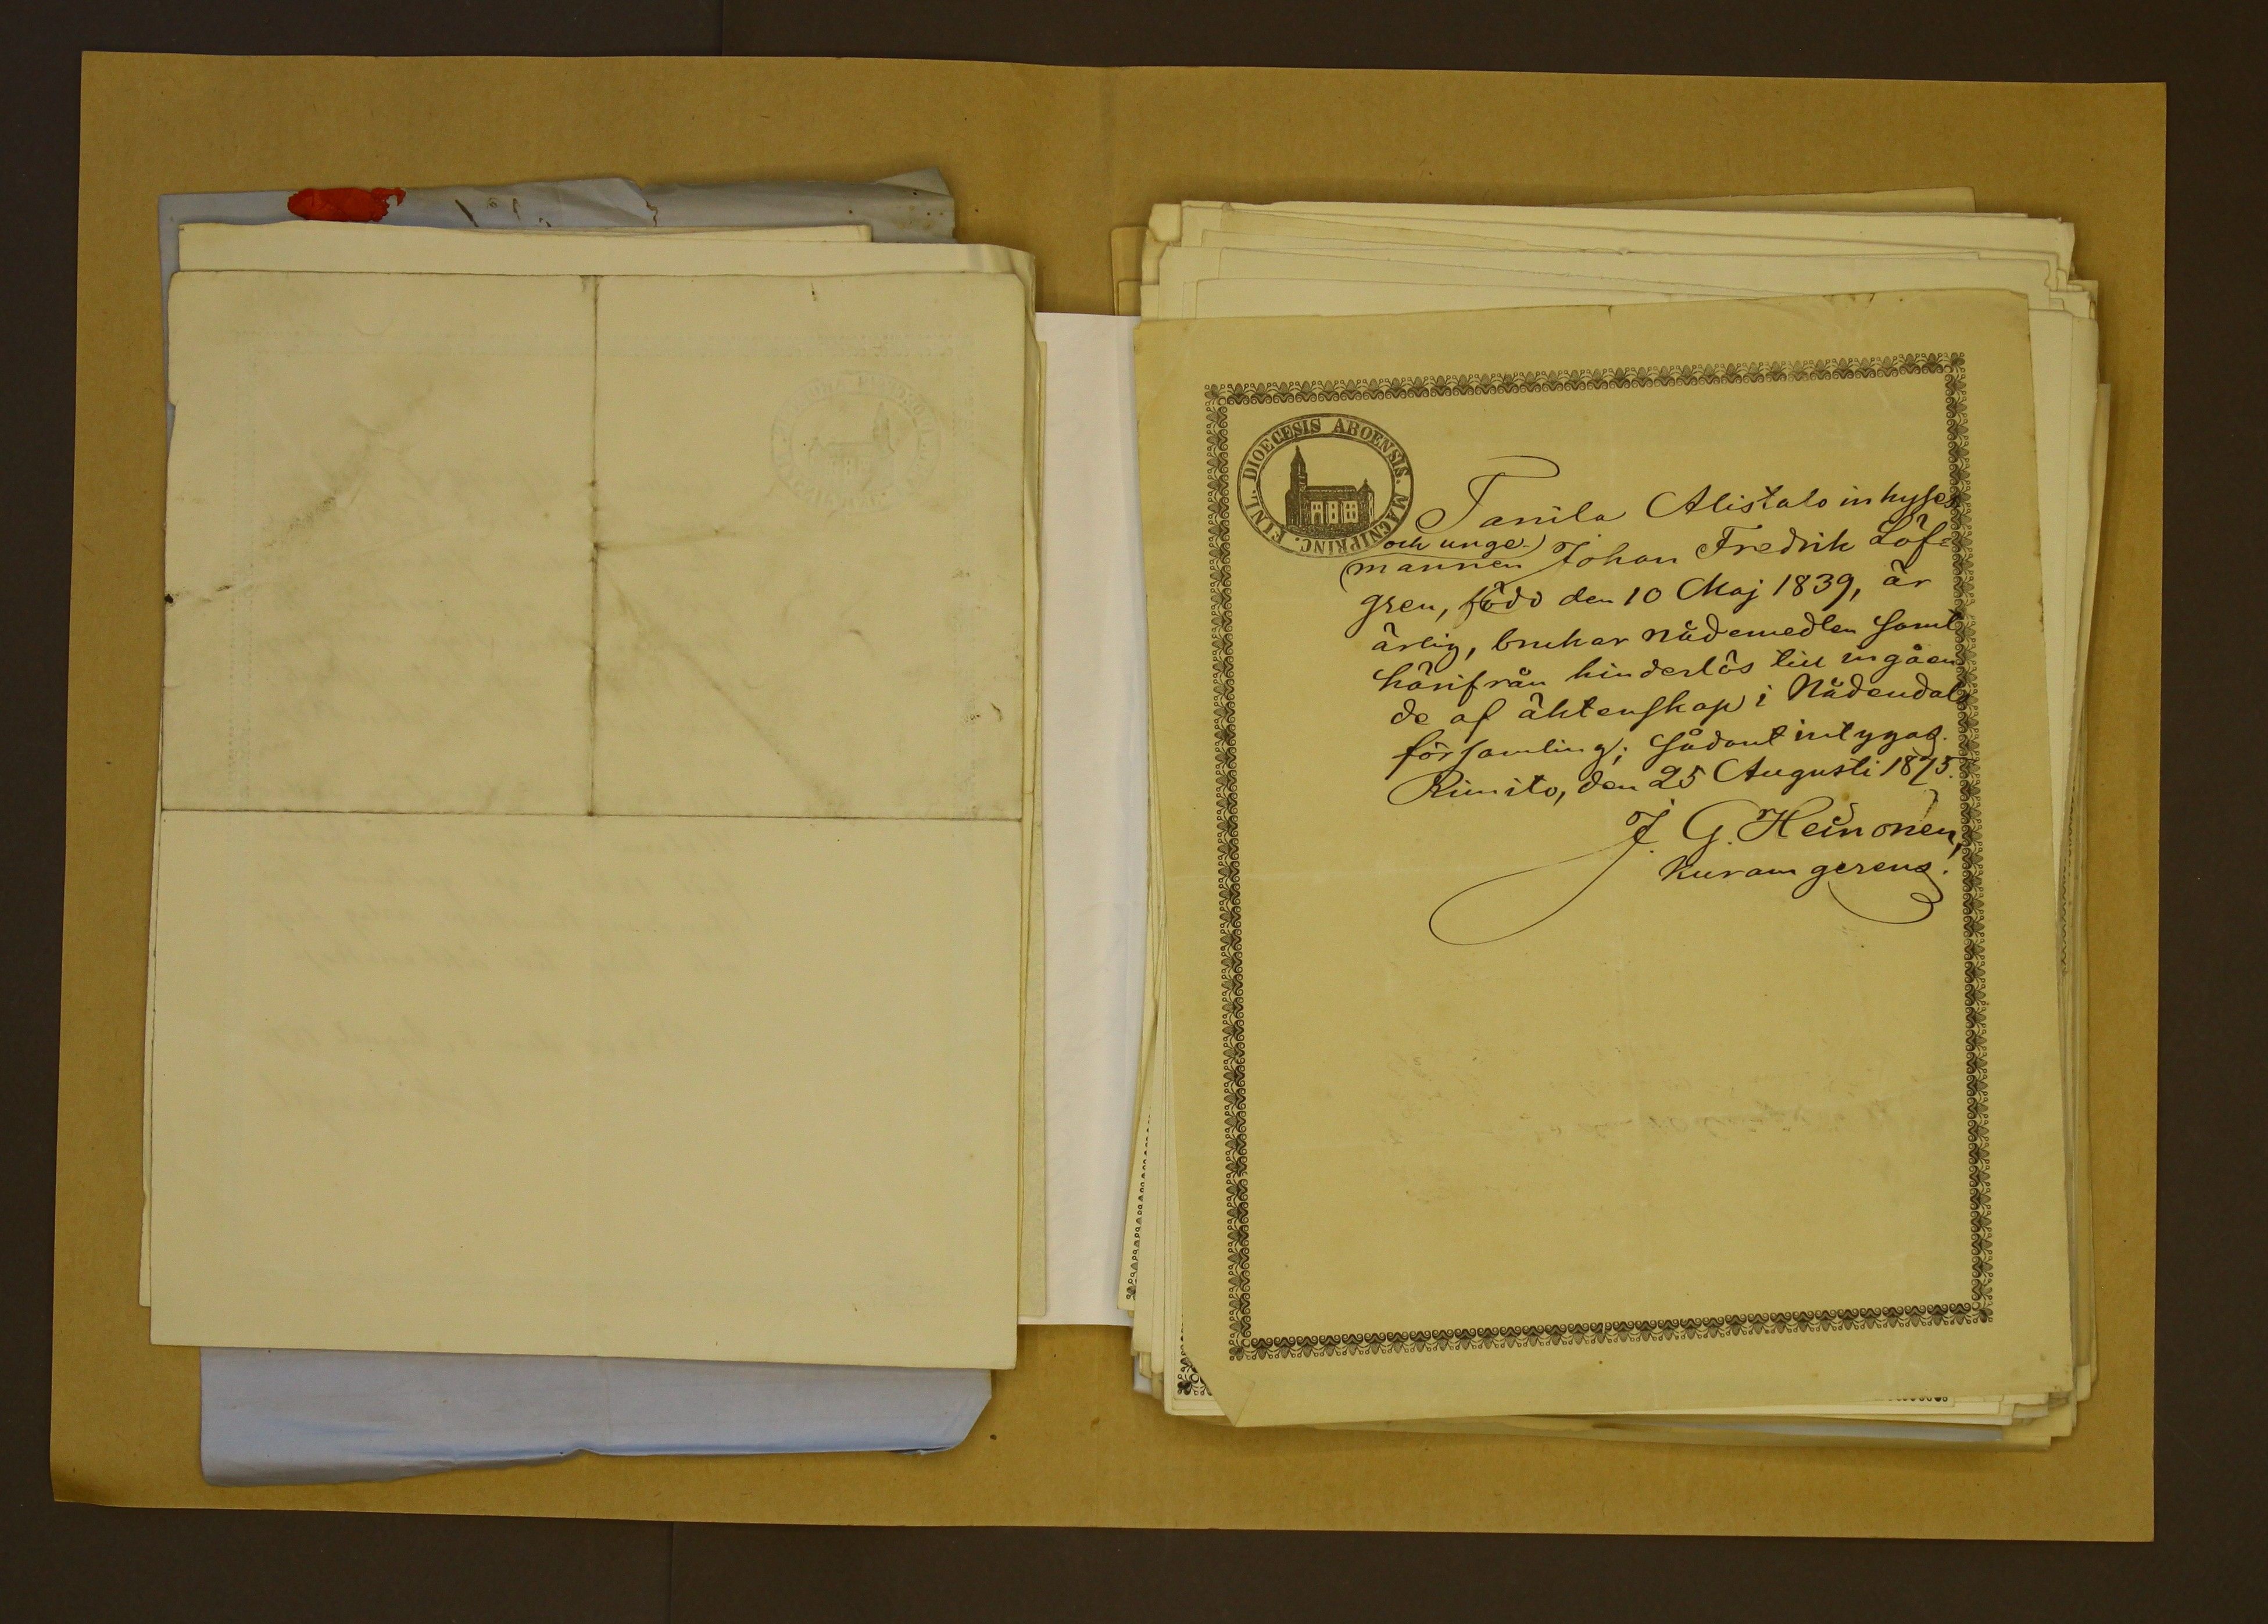 DIOECESIS ABOENSIS. MAGNIPRINC. FINL.
Tanila Alistalo inhyses
och unge-
mannen Johan Fredrik Löf-
gren, född den 10 Maj 1839, är
ärlig, brukar nådemedlen samt
härifrån hinderlös till ingåen-
de af äktenskap i Nådendals
församling; sådant intygas.
Rimito, den 25 Augusti 1875.
J. G. Heinonen,
Kuram gerens.